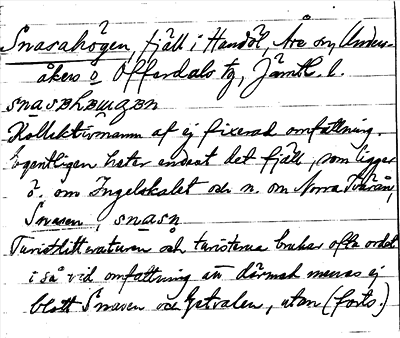 Snasahögen, fjäll i Handöl, Åre sn, Unders-
åkers o. Offerdals tg, Jämtl. l.
snasahøugen
Kollektivnamn af ej fixerad omfattning.
Egentligen heter endast det fjäll, som ligger
ö. om Ingelskalet och n. om Norra Tvärån,
Snasen, snasn
Turistlitteraturen och turisterna bruka ofta ordet
i så vid omfattning att därmed menas ej
blott Snasen och Getvalen, utan (forts.)